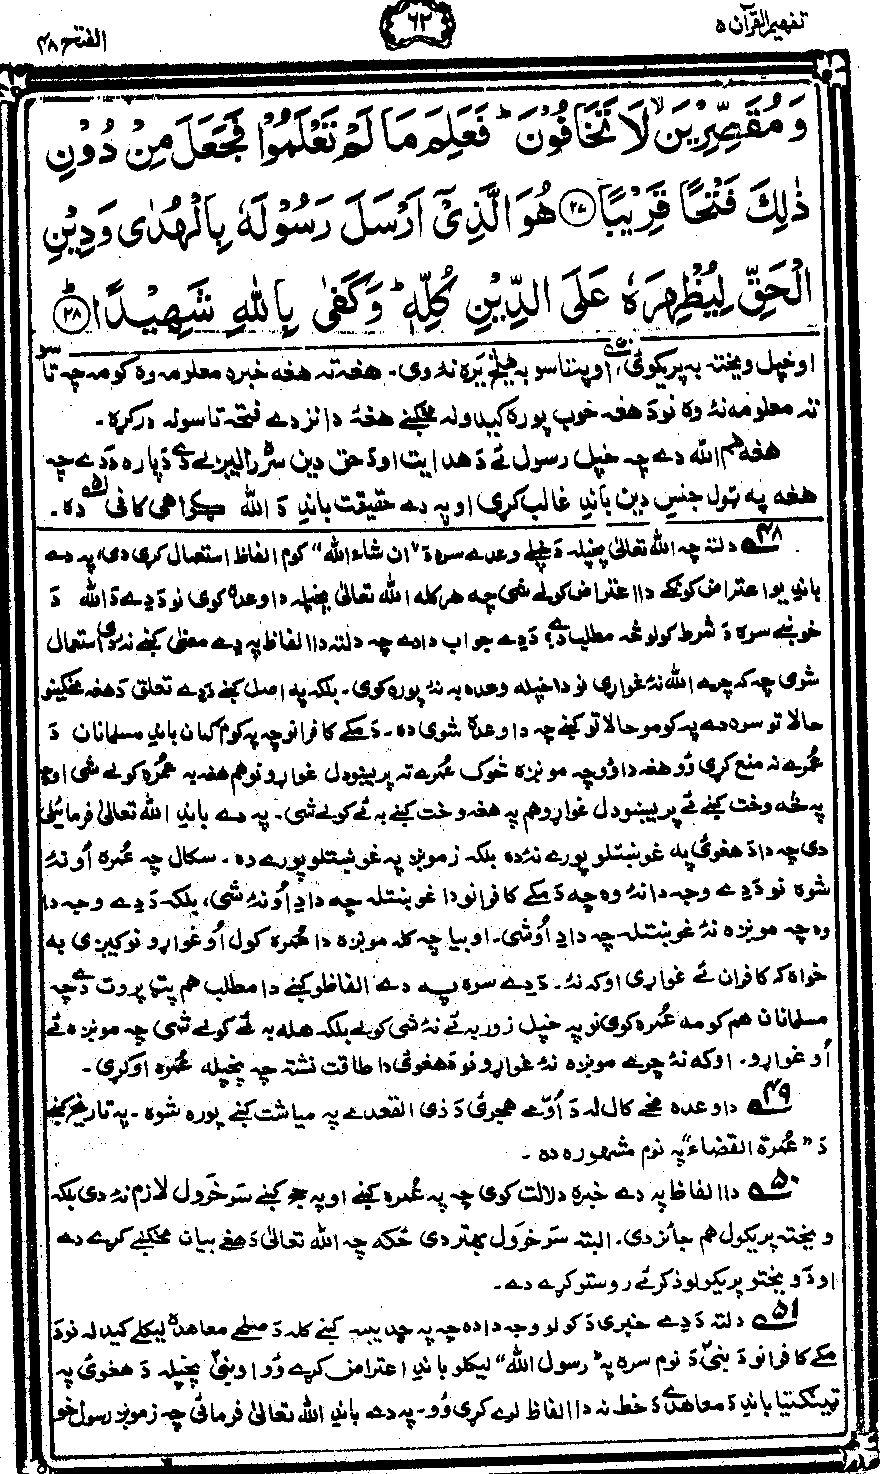 تفهیم القرآن ۵
۶۲
الفتح ۴۸
وَ مُقَصِّرِیْنَ ۙ لَا تَخَافُوْنَ ؕ فَعَلِمَ مَا لَمْ تَعْلَمُوْا فَجَعَلَ مِنْ دُوْنِ
ذٰلِكَ فَتْحًا قَرِیْبًا ﴿۲۷﴾ هُوَ الَّذِیْۤ اَرْسَلَ رَسُوْلَهٗ بِالْهُدٰی وَ دِیْنِ
الْحَقِّ لِیُظْهِرَهٗ عَلَی الدِّیْنِ كُلِّهٖ ؕ وَ كَفٰی بِاللّٰهِ شَهِیْدًا ﴿۲۸﴾
او خپل ویښته به پریکوئ ۵۰، او ستاسو به هیڅ یره نهٔ وی۔ هغه ته هغه خبره معلومه وه کومه چه تاسو
ته معلومه نهٔ وه نو د هغه خوب پوره کیدو نه مخکښے هغهٔ دا نزدے فتحه تاسو له درکړه۔
هغه هم الله دے چه خپل رسول ئے دَ هدایت او دَ حق دین سره رالیږلے دے دَپاره دَ دے چه
هغه په ټول جنس دین باندِ غالب کړی او په دے حقیقت باندِ دَ الله ګواهی کافی ۵۱ ده۔
۴۸ دلته چه الله تعالیٰ پخپله دَ خپلے وعدے سره دَ "ان شاء الله" کوم الفاظ استعمال کړی دی، په دے
باندِ یو اعتراض کونکے دا اعتراض کولے شی چه هرکله الله تعالیٰ پخپله دا وعده کوی نو دَ دے دَ الله دَ
خوښے سره دَ شرط کولو څه مطلب دے؟ دَ دے جواب دا دے چه دلته دا الفاظ په دے معنیٰ کښے نهٔ دی استعمال
شوی چه که چرے الله نهٔ غواړی نو دا خپله وعده به نهٔ پوره کوی۔ بلکه په اصل کښے دَ دے تعلق دَ هغه مخکینو
حالاتو سره دے په کومو حالاتو کښے چه دا وعده شوی ده۔ دَ مکے کافرانو چه په کوم ګمان باندِ مسلمانان دَ
عُمرے نه منع کړی وُو هغه دا وُو چه مونږه څوک عُمرے ته پریښودل غواړو نو هم هغه به عُمره کولے شی او چه
په څه وخت کښے ئے پریښودل غواړو هم په هغه وخت کښے به ئے کولے شی۔ په دے باندِ الله تعالیٰ فرمائیلی
دی چه دا دَ هغوئ په غوښتلو پورے نهٔ ده بلکه زمونږ په غوښتلو پورے ده۔ سږکال چه عُمره اُونهٔ
شوه نو دَ دے وجه دا نهٔ وه چه دَ مکے کافرانو دا غوښتله چه دا دِ اُونهٔ شی، بلکه دَ دے وجه دا
وه چه مونږه نهٔ غوښتله چه دا دِ اُوشی۔ او بیا چه کله مونږه دا عُمره کول اُوغواړو نو کیږی به
خواه که کافران ئے غواړی او که نهٔ۔ دَ دے سره په دے الفاظو کښے دا مطلب هم پټ پروت دے چه
مسلمانان هم کومه عُمره کوی نو په خپل زور به ئے نهٔ شی کولے بلکه هله به ئے کولے شی چه مونږه ئے
اُوغواړو۔ او که نهٔ چرے مونږه نهٔ غواړو نو دَ هغوئ دا طاقت نشته چه پخپله عُمره اوکړی۔
۴۹ دا وعده مخے کال له دَ اُوّے هجری دَ ذی القعدے په میاشت کښے پوره شوه۔ په تاریخ کښے
دَ "عُمرة القضاء" په نوم مشهوره ده۔
۵۰ دا الفاظ په دے خبره دلالت کوی چه په عُمره کښے او په حج کښے سر خرَول لازم نهٔ دی بلکه
ویښته پریکول هم جائز دی۔ البته سر خرَول بهتر دی ځکه چه الله تعالیٰ دَ هغے بیان مخکښے کړے دے
او دَ ویښتو پریکولو ذکر ئے روستو کړے دے۔
۵۱ دلته دَ دے خبری دَ کولو وجه دا ده چه په حدیبیه کښے کله دَ صلحے معاهده لیکلے کیدله نو دَ
مکے کافرانو دَ نبیؐ دَ نوم سره په "رسول الله" لیکلو باندِ اعتراض کړے وُو او نبیؐ پخپله دَ هغوئ په
ټینګتیا باندِ دَ معاهدے دَ خط نه دا الفاظ لرے کړی وُو۔ په دے باندِ الله تعالیٰ فرمائی چه زمونږ رسول خو